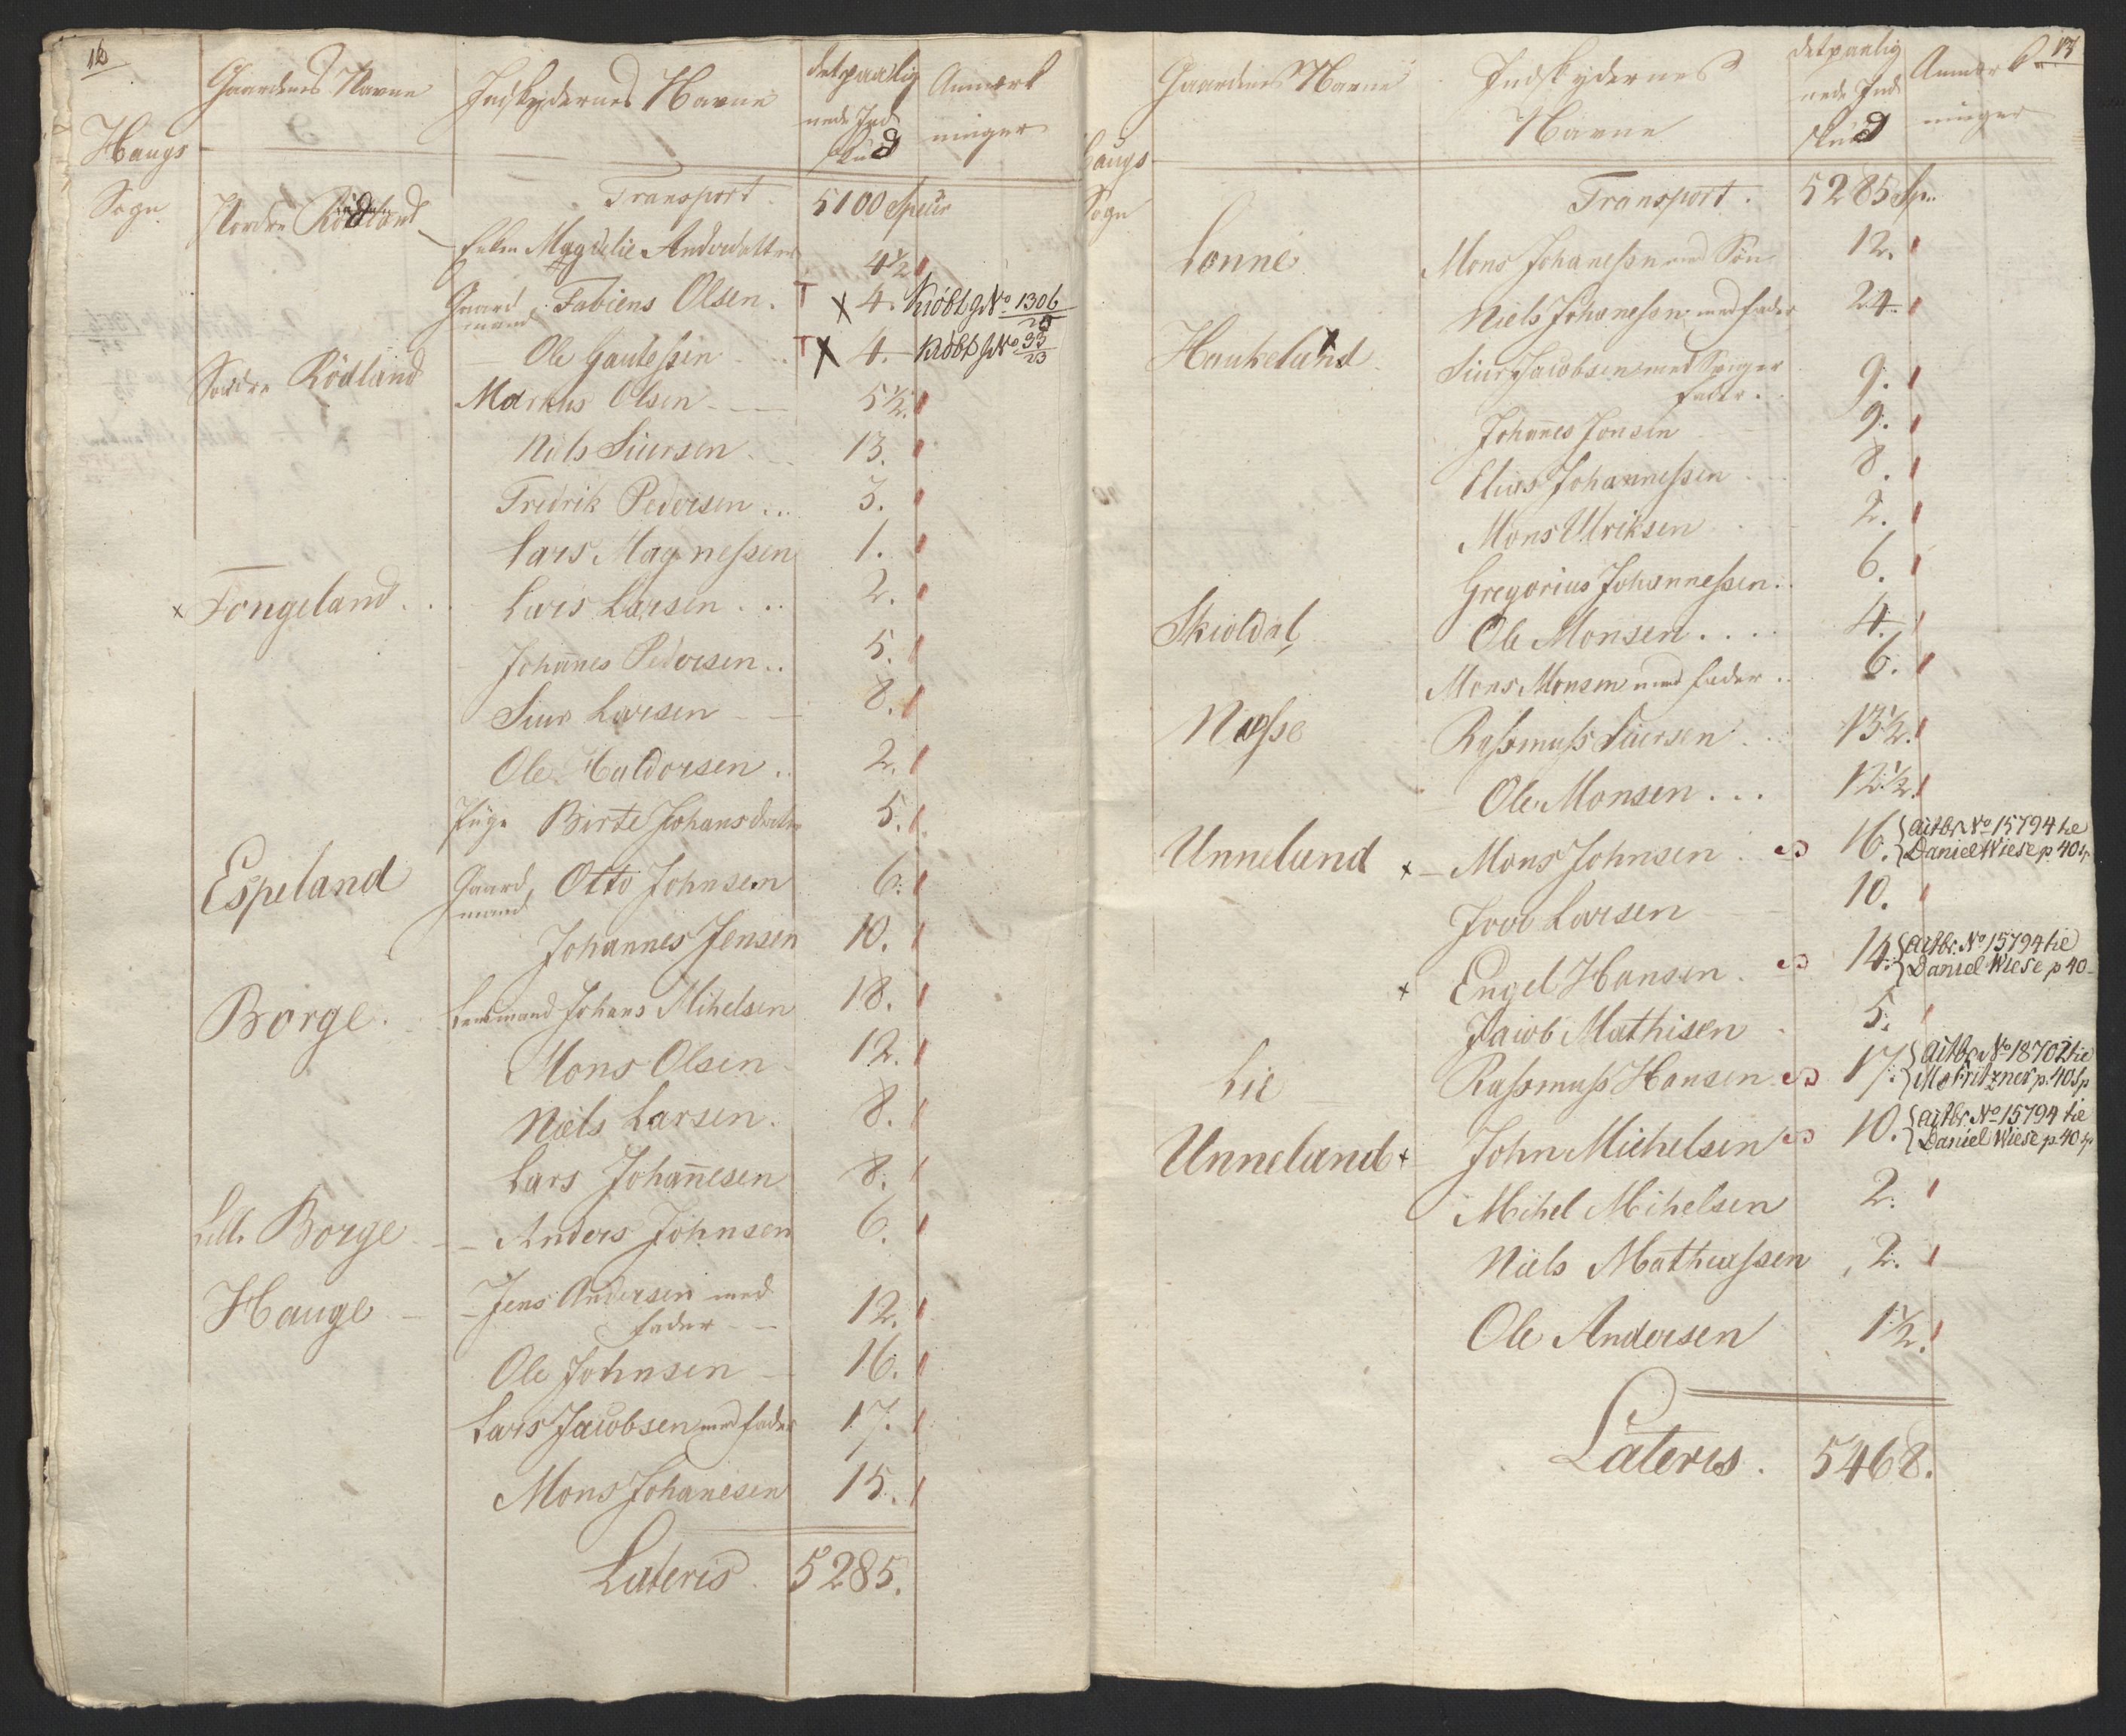 16
Gaardenes Navne Indskydernes Navne detpaalig Anmærk
nede Ind ninger
Haugs skud
Sogn Transport 5100 Specier
Nordre Rödland Enken Magdelie Andersdatter 4½
Gaard mand Fabiens Olsen. T x 4. Kiöbt g No 1306/20
Ole Gautessen T x 4. Kiöbt g No 33/23
Søndre Rödland Markus Olsen 5½.
Niels Siursen 13.
Fredrik Pedersen 3.
Lars Magnessen 1.
x Fongeland Lars Larsen 2.
Johannes Pedersen 5.
Siur Larsen 8.
Ole Haldorsen 2.
Pige Birte Johansdatter 5.
Espeland Gaard mand Otto Johnsen 6.
Johannes Jensen 10.
Borge. Lensmand Johans Mihelsen 18.
Mons Olsen 12.
Niels Larsen. 8.
Lars Johanesen 8.
Lille Borge Anders Johnsen 6.
Hauge Jens Andersen med
fader 12.
Ole Johnsen 16.
Lars Jacobsen med fader 17.
Mons Johanesen 15.
Lateris 5285.
17
Gaardenes Navne Indskydernes detpaalig Anmærk
Navne nede Ind ninger
Haugs skud
Sogn Transport. 5285 Sp.
Lonne Mons Johanessen med Sön 12.
Niels Johanessen med fader 24.
Haukeland Siur Jacobsen med Sviger
fader. 9.
Johannes Jonsen 9.
Elias Johannessen 8.
Mons Ulriksen 2.
Gregorius Johannessen 6.
Skioldal Ole Monsen 4.
Mons Monsen med fader 6.
Næsse Rassmuss Siursen 13½.
Ole Monsen 12½.
Unneland x Mons Johnsen 16. {Actbr. No 15794 tie
Daniel Wiese p. 40 sp
Joen Larsen 10.
x Engel Hansen 14. {Actbr. No 15794 tie
Daniel Wiese p 40
Jacob Mathisen 5.
Lie Rassmuss Hansen 17. {Actbr No 18702 tie
M Fritzner p. 40 Sp
Unneland x John Michelsen 10. {Actbr. No 15794 tie
Daniel Wiese p. 40 sp
Mihel Mihelsen 2.
Niels Mathiassen 2.
Ole Andersen 1½.
Lateris. 5468.